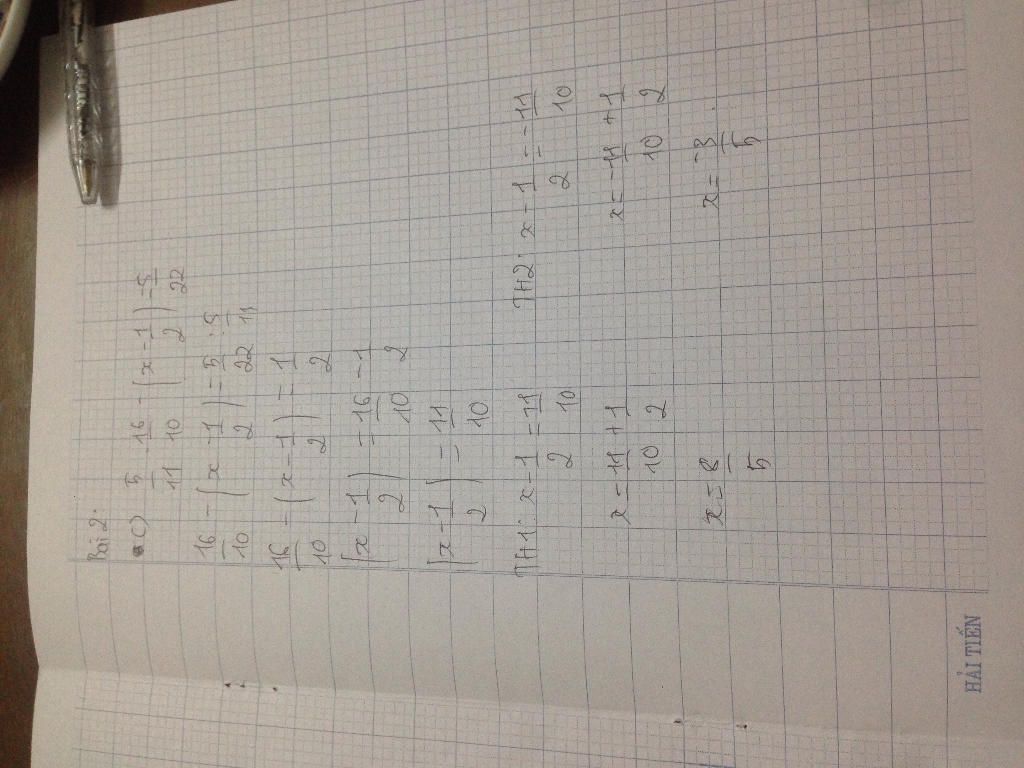 Bài 2:
c) 5/11 · 16/10 - (x - 1/2) = 5/22
16/10 - (x - 1/2) = 5/22 : 5/11
16/10 - (x - 1/2) = 1/2
(x - 1/2) = 16/10 - 1/2
(x - 1/2) = 11/10
TH1: x - 1/2 = 11/10 TH2: x - 1/2 = -11/10
x = 11/10 + 1/2 x = -11/10 + 1/2
x = 8/5 x = -3/5.
HẢI TIẾN